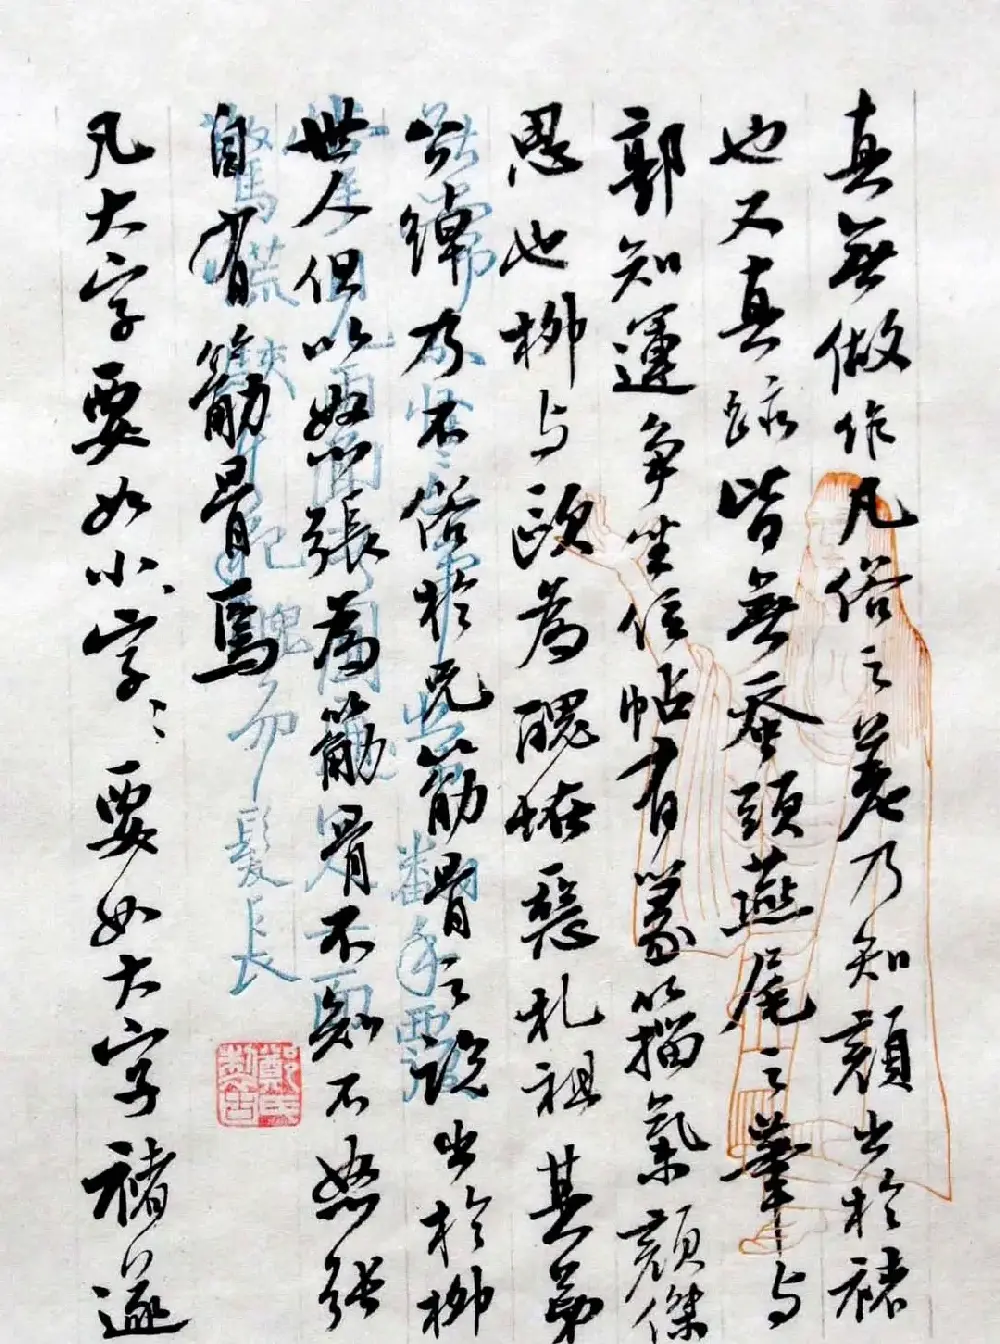 真無做作凡俗之差乃知顏出於褚
也又真跡皆無蚕頭燕尾之筆与
郭知運争坐位帖有篆籀氣顏傑
思也柳与歐為醜怪惡札祖其弟
公綽乃不俗於兄筋骨之說出於柳
世人但以怒張為筋骨不知不怒張
自有筋骨焉
凡大字要如小〻字〻要如大字褚遂